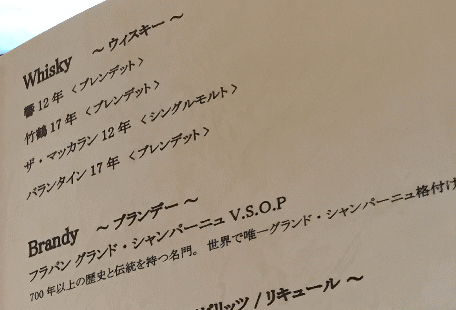 Whisky ～ウィスキー～
響12年〈ブレンデット〉
竹鶴17年〈ブレンデット〉
ザ・マッカラン12年〈シングルモルト〉
バランタイン17年〈ブレンデット〉
Brandy ～ブランデー～
フラパン グランド・シャンパーニュ V.S.O.P
700年以上の歴史と伝統を持つ名門。世界で唯一グランド・シャンパーニュ格付け
ピリッツ / リキュール ～